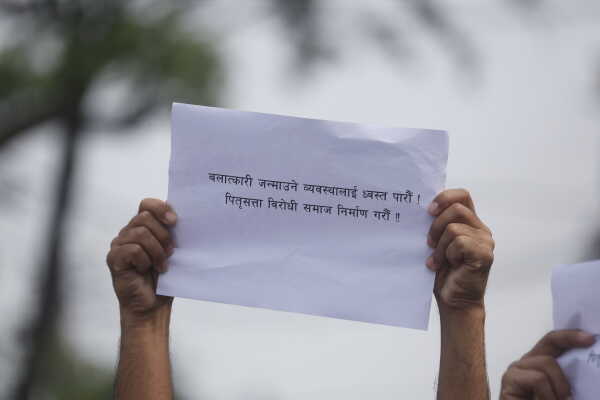 बलात्कारी जन्माउने व्यवस्थालाई ध्वस्त पारौं !
पितृसत्ता विरोधी समाज निर्माण गरौं !!